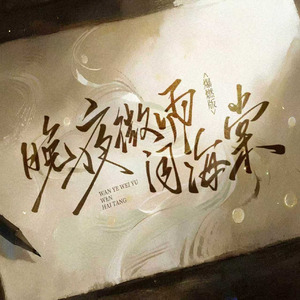 晚夜微雨
问海棠
<爆燃版>
WAN YE WEI YU
WEN
HAI TANG